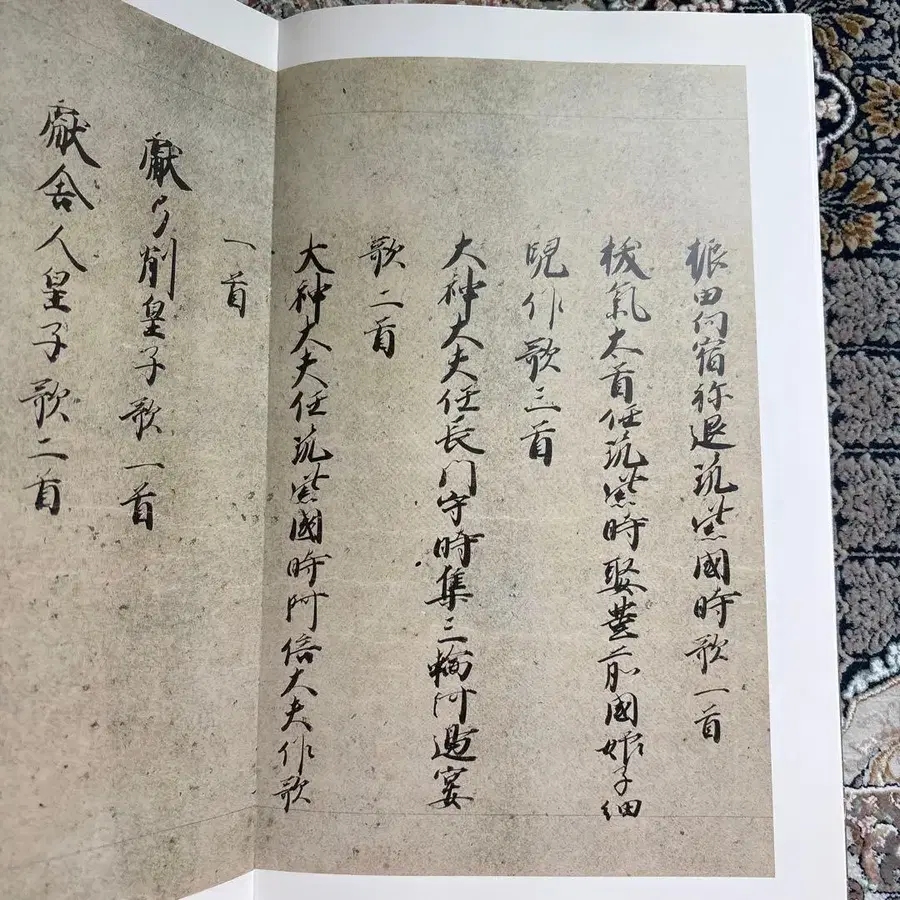 振田向宿祢退筑紫國時歌一首
抜氣大首任筑紫時娶豊前國娘子紐
兒作歌三首
大神大夫任長門守時集三輪河邊宴
歌二首
大神大夫任筑紫國時阿倍大夫作歌
一首
獻弓削皇子歌一首
獻舎人皇子歌二首